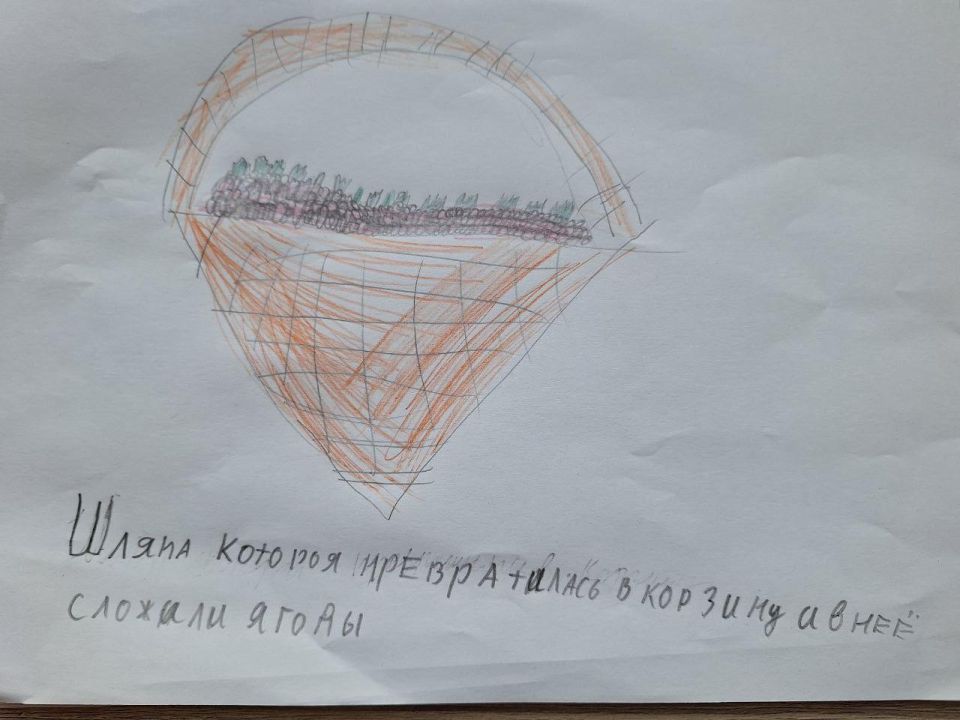 Шляпа котороя превратилась в корзину а в неё
сложали ягоды